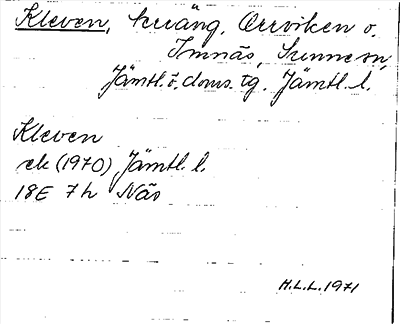 Kleven, kuäng. Orrviken o.
Imnäs, Sunne sn,
Jämtl. ö. doms. tg. Jämtl. l.
Kleven
ek (1970) Jämtl. l.
18E 7h Näs
H.L.L. 1971